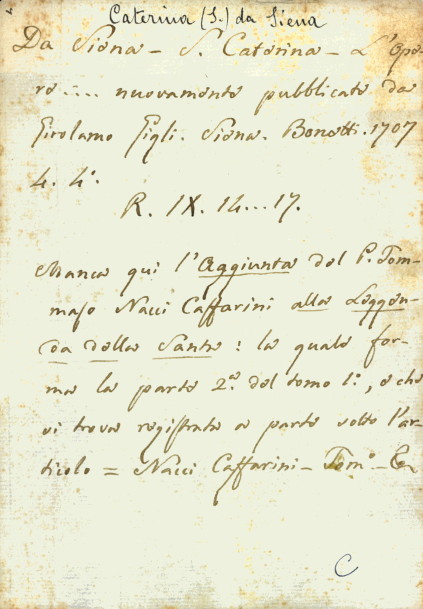 Caterina (S.) da Siena
Da Siena - S. Caterina - L'Ope-
re .... nuovamente pubblicate da
Girolamo Gigli. Siena. Bonetti. 1707
4. 4°.
R. IX. 14...17.
Manca qui l'Aggiunta del P. Tom-
maso Nacci Caffarini alla Leggen-
da della Santa: la quale for-
ma la parte 2ª. del tomo 1°., e che
si trova registrata a parte sotto l'ar-
ticolo = Nacci Caffarini - Tomº.
C